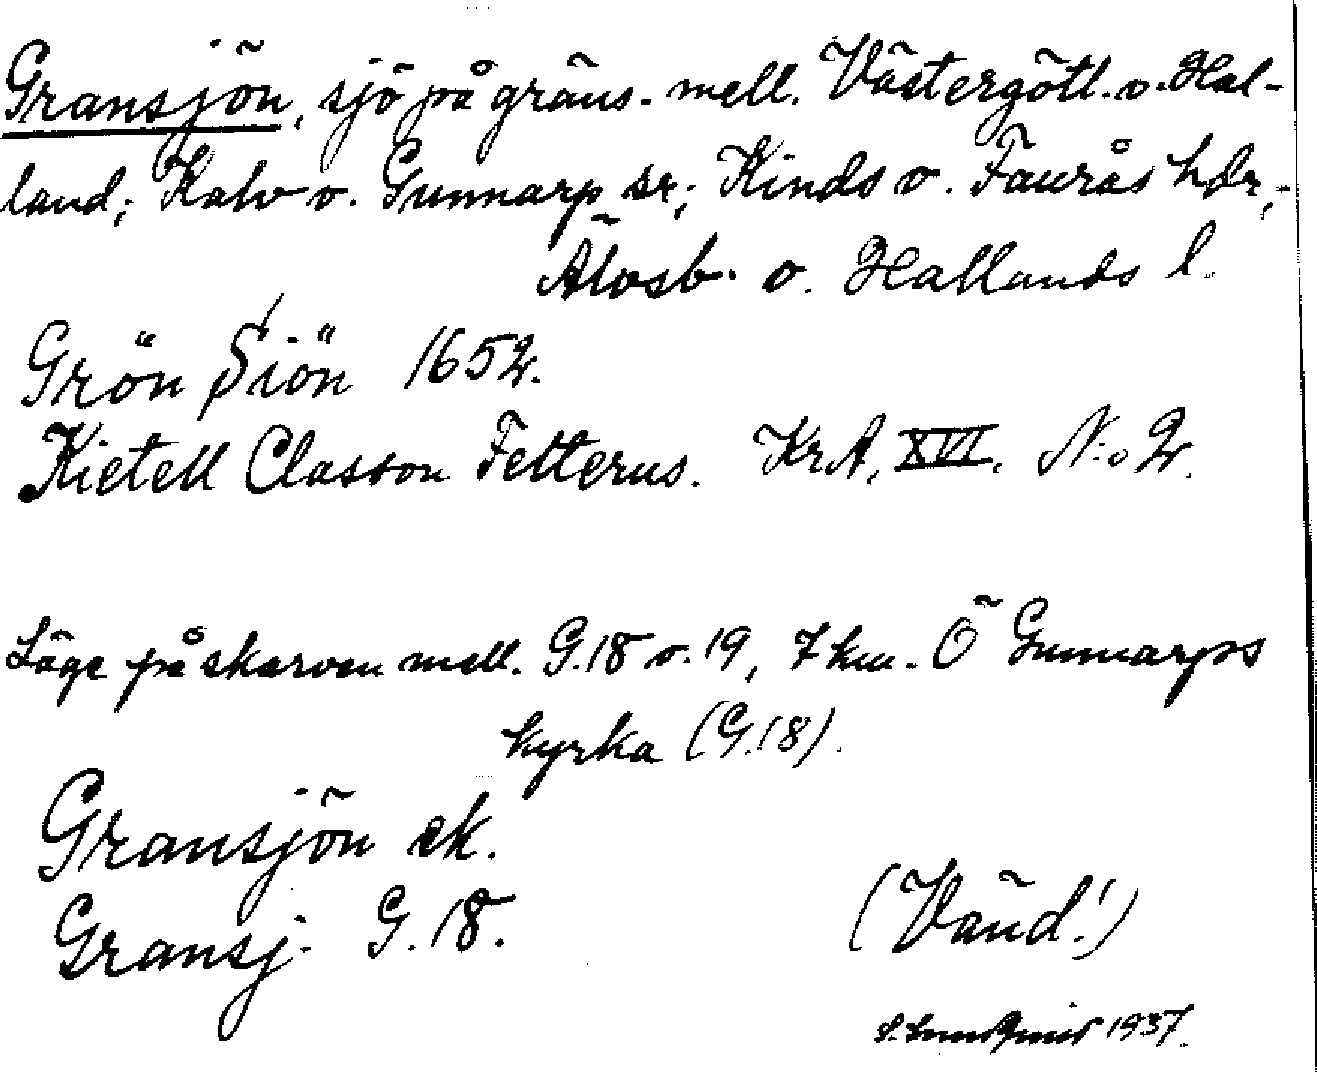 Gransjön, sjö på gräns. mell. Västergötl. o. Hal-
land; Kalv o. Gunnarp sr; Kinds o. Faurås hdr,
Älvsb. o. Hallands l.
Grön Siön 1652.
Kietell Classon Felterus. KrA, XVI. N:o 2.
Läge på skarven mell. G.18 o. 19, 7 km. Ö Gunnarps
kyrka (G.18).
Gransjön ek.
Gransj. G.18.
(Vänd!)
1937.